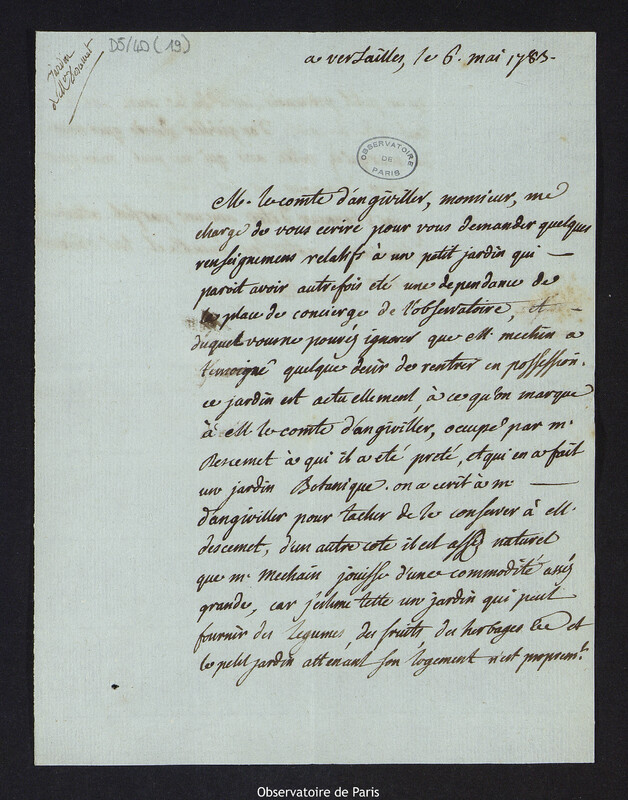 Jardin
de Mr. Descemet
D5/40 (19)
a versailles, le 6. mai 1785.
OBSERVATOIRE
DE
PARIS
M. le comte d'angiviller, monsieur, me
charge de vous ecrire pour vous demander quelques
renseignemens relatifs à un petit jardin qui —
paroit avoir autrefois été une dependance de
la place de concierge de l'observatoire, et —
duquel vous ne pouvés ignorer que M. mechin a
temoigné quelque desir de rentrer en possession.
ce jardin est actuellement à ce qu'on marque
à M le comte d'angiviller, occupé par mr.
Descemet à qui il a eté preté, et qui en a fait
un jardin Botanique. on a ecrit à m —
d'angiviller pour tacher de le conserver à M.
descemet, d'un autre coté il est assés naturel
que mr. Mechain jouisse d'une commodité assés
grande, car j'estime telle un jardin qui peut
fournir des legumes des fruits des herbages &c et
le petit jardin attenant son logement n'est propremt.
Observatoire de Paris